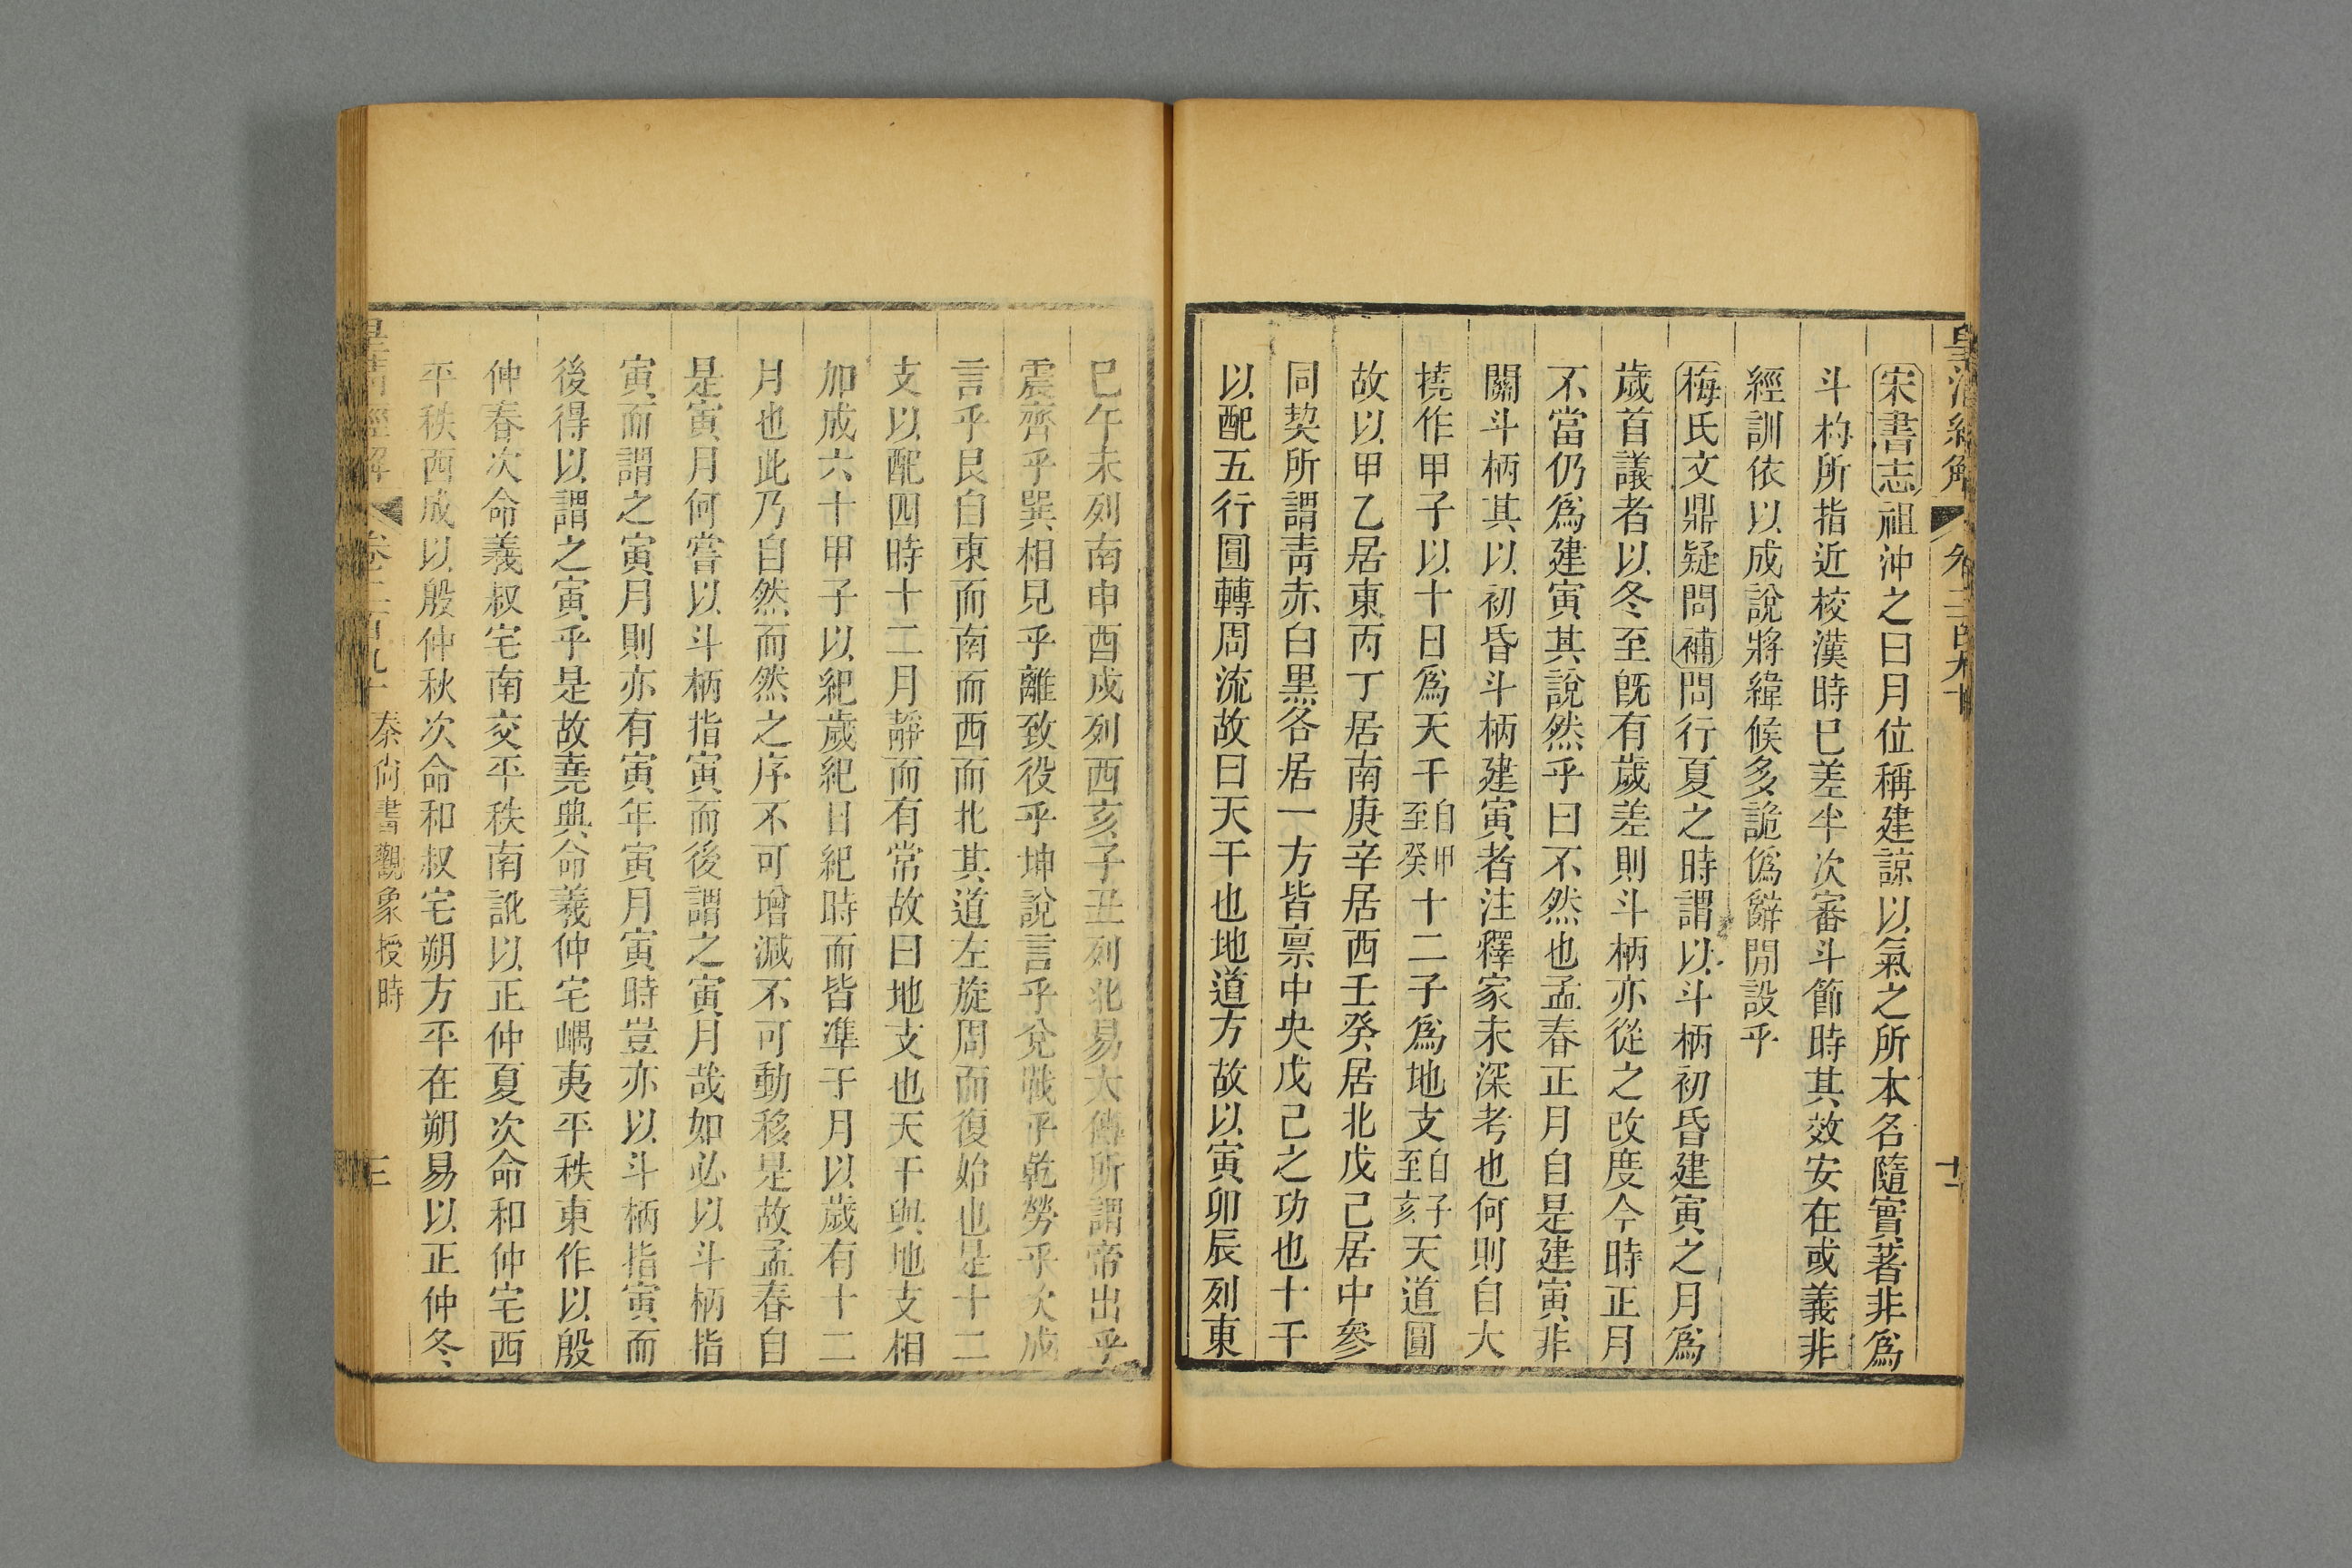 皇清經解
卷二百九十
宋書志祖沖之曰月位稱建諒以氣之所本名隨實著非爲
斗杓所指近校漢時巳差半次審斗節時其效安在或義非
經訓依以成說將緯候多詭僞辭閒設乎
梅氏文鼎疑問補問行夏之時謂以斗柄初昏建寅之月爲
歲首議者以冬至旣有歲差則斗柄亦從之改度今時正月
不當仍爲建寅其說然乎曰不然也孟春正月自是建寅非
關斗柄其以初昏斗柄建寅者注釋家未深考也何則自大
撓作甲子以十日爲天干自甲至癸十二子爲地支自子至亥天道圓
故以甲乙居東丙丁居南庚辛居西壬癸居北戊己居中參
同契所謂青赤白黑各居一方皆稟中央戊己之功也十干
以配五行圓轉周流故曰天干也地道方故以寅卯辰列東
巳午未列南申酉戌列西亥子丑列北易大傳所謂帝出乎
震齊乎巽相見乎離致役乎坤說言乎兌戰乎乾勞乎坎成
言乎艮自東而南而西而北其道左旋周而復始也是十二
支以配四時十二月靜而有常故曰地支也天干與地支相
加成六十甲子以紀歲紀日紀時而皆準于月以歲有十二
月也此乃自然而然之序不可增減不可動移是故孟春自
是寅月何嘗以斗柄指寅而後謂之寅月哉如必以斗柄指
寅而謂之寅月則亦有寅年寅月寅時豈亦以斗柄指寅而
後得以謂之寅乎是故堯典命羲仲宅嵎夷平秩東作以殷
仲春次命羲叔宅南交平秩南訛以正仲夏次命和仲宅西
平秩西成以殷仲秋次命和叔宅朔方平在朔易以正仲冬
皇清經解
卷二百九十
秦尚書觀象授時
三